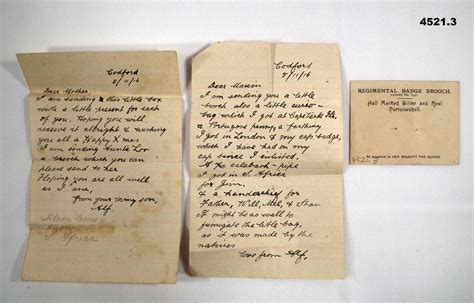 4521.3
Codford
5/11/16
Dear Mother,
I am sending this little box
with a little present for each
of you. Hoping you will
receive it allright & wishing
you all a Happy X mas
I am sending Aunt
a brooch which you can
please send to her
Hoping you are all well
as I am,
from your loving son,
Alf.
S. Africa
Codford
5/11/16
Dear
I am sending you a little
brooch also a little
bag, which I got at Cape Verde Ils.
a Portugese penny, a farthing
I got in London & my cap badge,
which I have had on my
cap since I enlisted.
A calabash pipe
I got in S. Africa
for Jim.
& a Handkerchief for
Father, Will, Mel, & Stan
I might be as well to
fumigate the little bag,
as it was made by the
natives
love from Alf.
REGIMENTAL BADGE BROOCH.
Hall Marked Silver and Real
Tortoiseshell.
As supplied to HER MAJESTY THE QUEEN